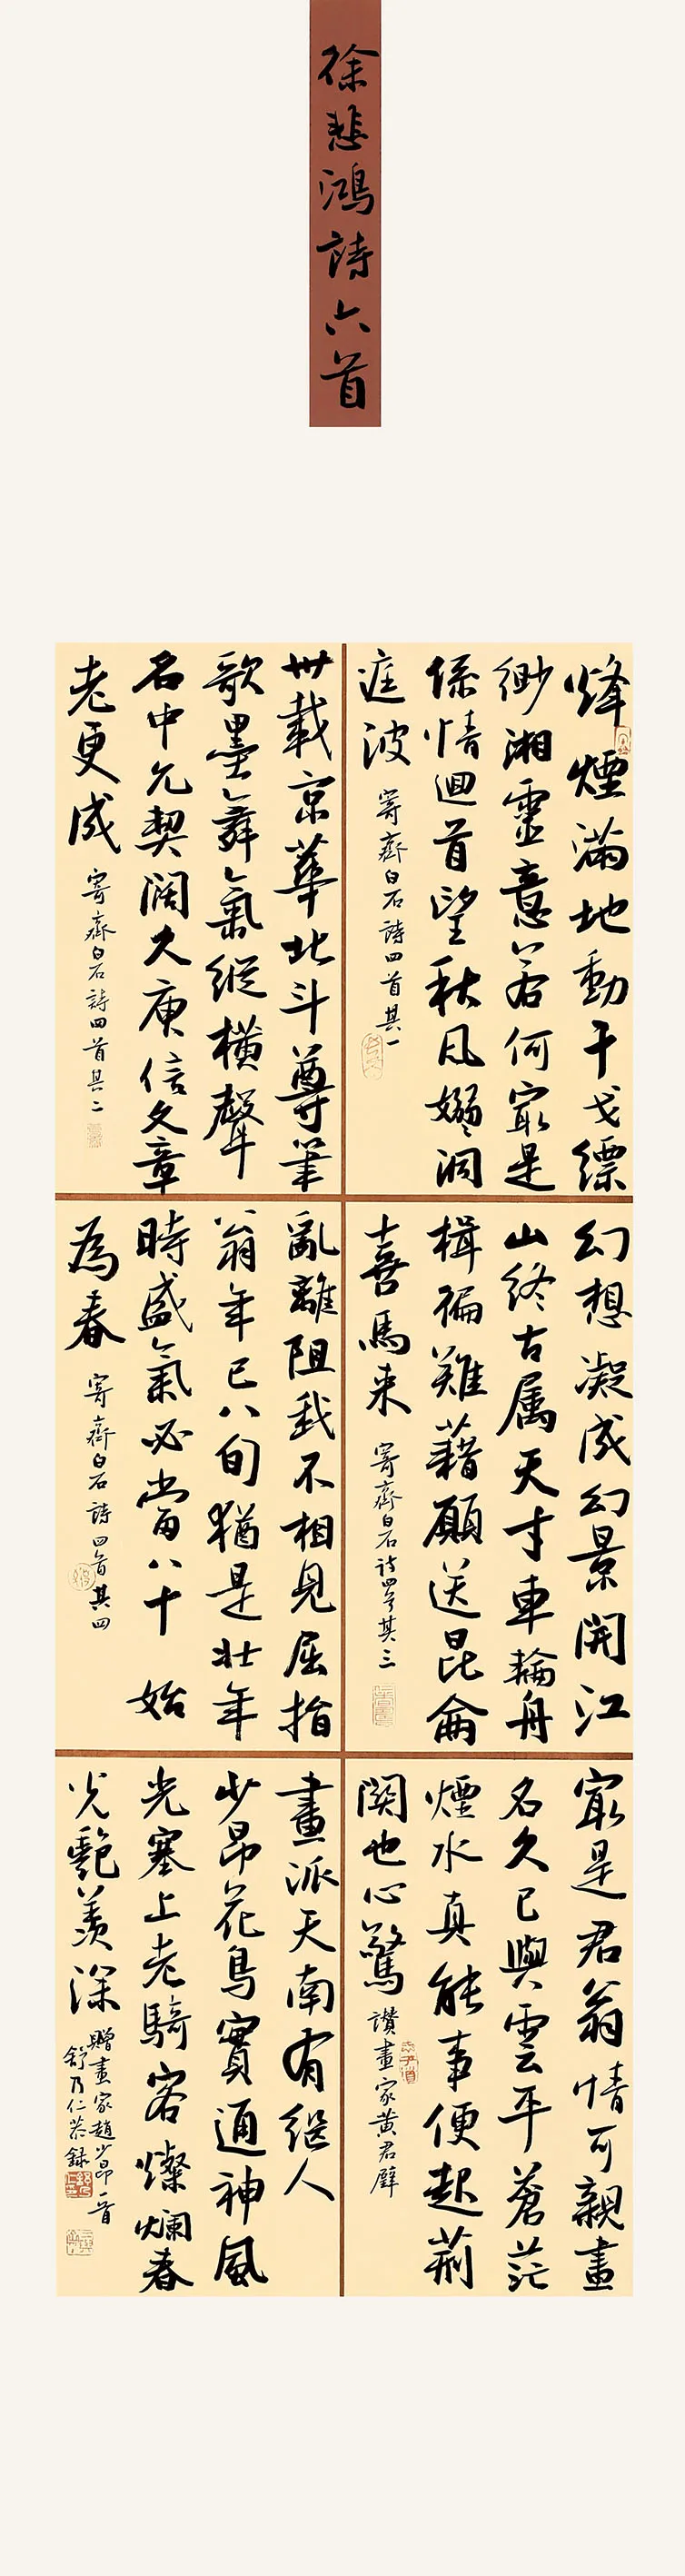 徐悲鴻詩六首
烽煙滿地動干戈縹
緲湘靈意若何最是
係情迴首望秋風嫋嫋洞
庭波
寄齊白石詩四首其一
卅載京華北斗尊筆
歌墨舞氣縱橫聲
名中允契闊久庾信文章
老更成
寄齊白石詩四首其二
幻想凝成幻景開江
山終古属天才車輪舟
楫徧難藉願送昆侖
喜馬來
寄齊白石詩四首其三
亂離阻我不相見屈指
翁年已八旬猶是壯年
時盛氣必當八十始
為春
寄齊白石詩四首其四
最是君翁情可親畫
名久已與雲平蒼茫
煙水真能事便起荊
関也心驚
讚畫家黄君璧
畫派天南有繼人
少昂花鳥實通神風
光塞上老騎客燦爛春
光艷羡深
贈畫家趙少昂一首
舒乃仁恭録